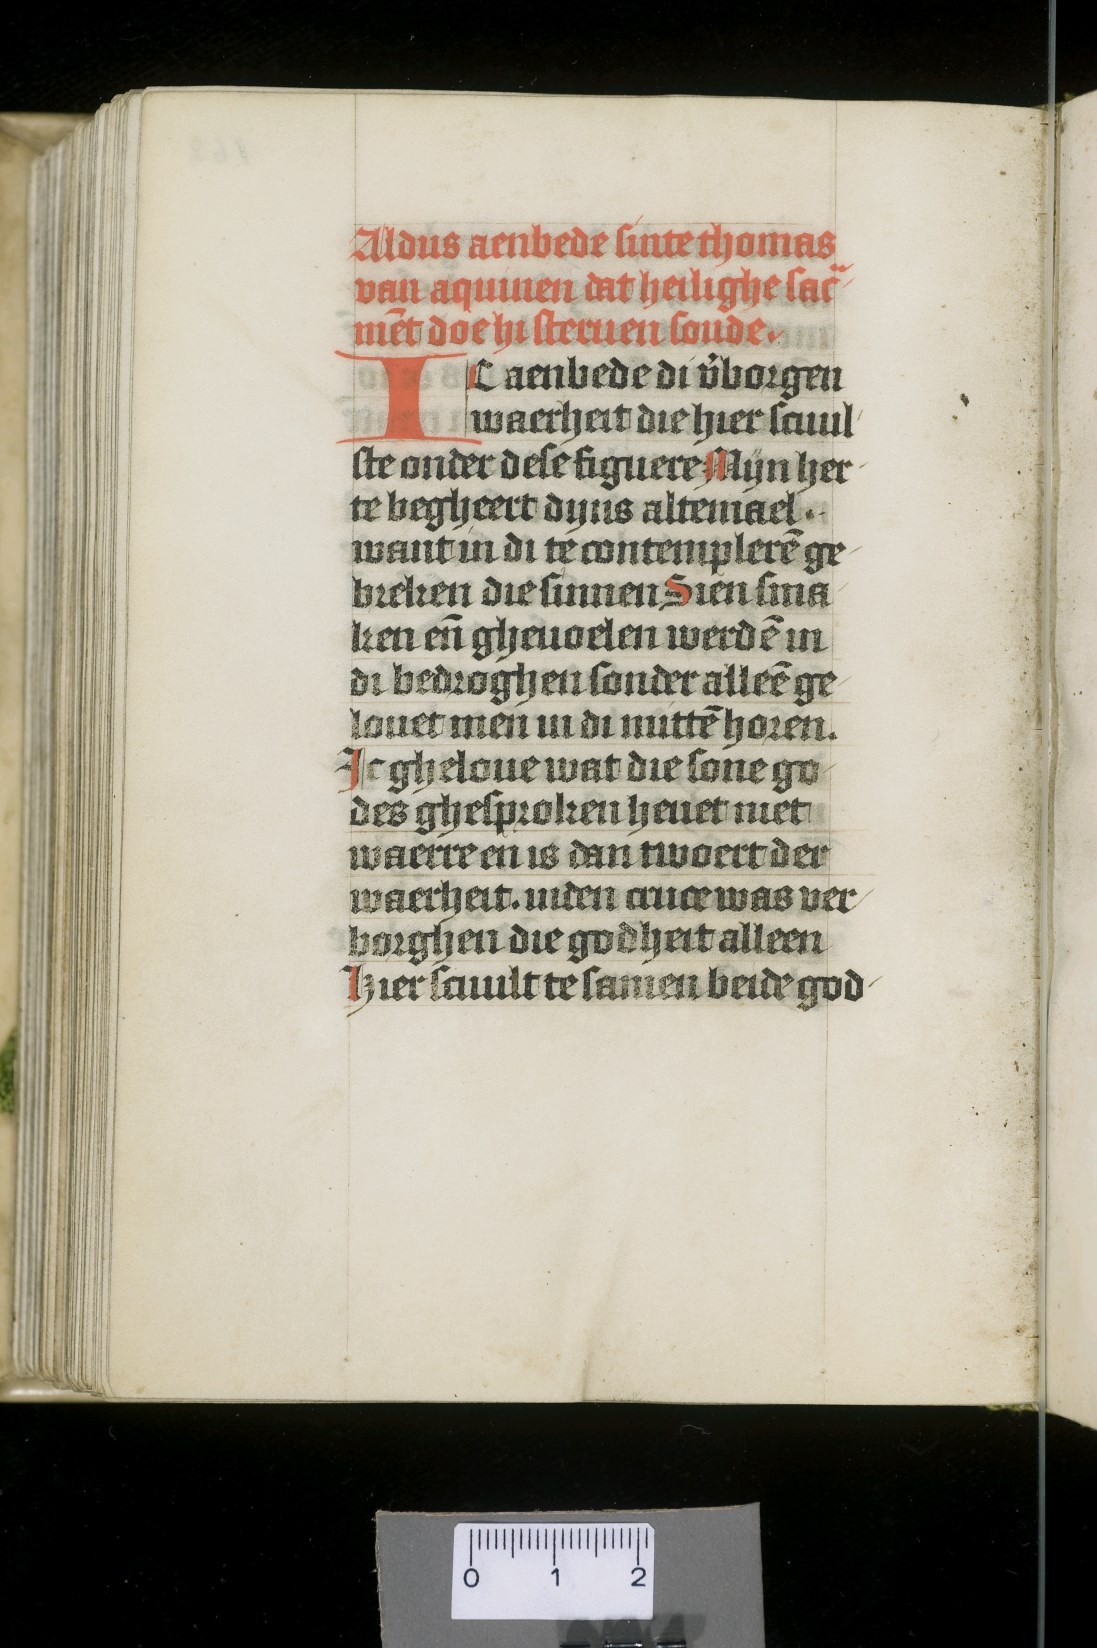 Aldus aenbede sinte thomas
van aquinen dat heilighe sac̃-
mēt doe hi steruen soude.
IC aenbede di v̉borgen
waerheit die hier scuul-
ste onder dese figuere Mijn her-
te begheert dijns altemael.
want in di te contemplerē ge-
breken die sinnen Sien sma-
ken en̄ gheuoelen werdē in
di bedroghen sonder alleē ge-
louet men in di mittē horen.
Ic gheloue wat die sone go-
des ghesproken heuet niet
waerre en is dan twoert der
waerheit. inden cruce was ver-
borghen die godheit alleen
Hier scuult te samen beide god-
0 1 2